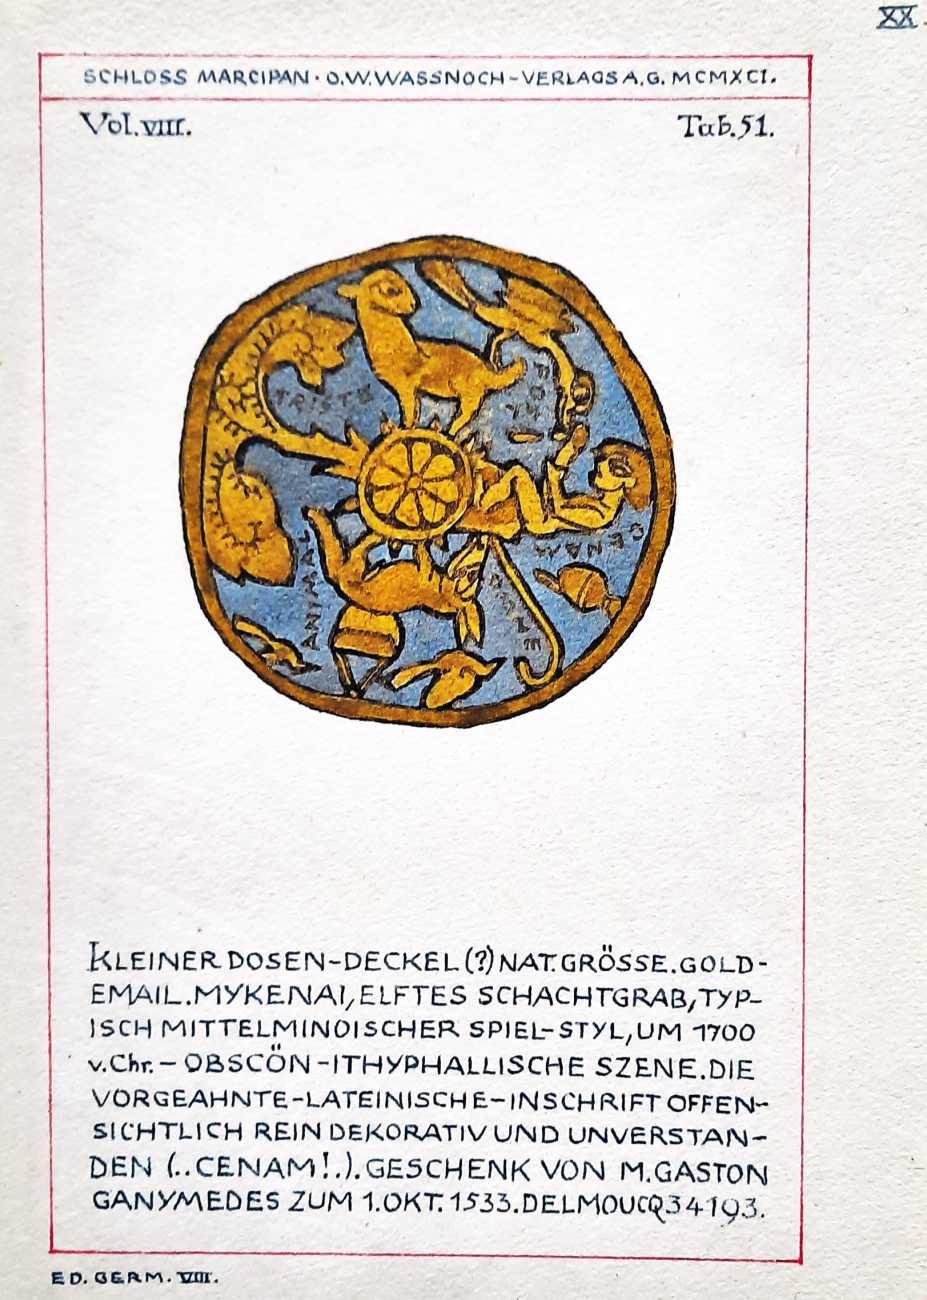 XX.
SCHLOSS MARCIPAN · O.W.WASSNOCH-VERLAGS A.G. MCMXCI.
Vol.VIII.
Tab.51.
TRISTE
POST
CENAM
OMNE
ANIMAL
KLEINER DOSEN-DECKEL (?) NAT.GRÖSSE.GOLD-
EMAIL.MYKENAI, ELFTES SCHACHTGRAB, TYP-
ISCH MITTELMINOISCHER SPIEL-STYL, UM 1700
v.Chr.- OBSCÖN-ITHYPHALLISCHE SZENE.DIE
VORGEAHNTE-LATEINISCHE-INSCHRIFT OFFEN-
SICHTLICH REIN DEKORATIV UND UNVERSTAN-
DEN (..CENAM!.).GESCHENK VON M.GASTON
GANYMEDES ZUM 1.OKT. 1533.DELMOUCQ 34193.
ED. GERM. VIII.